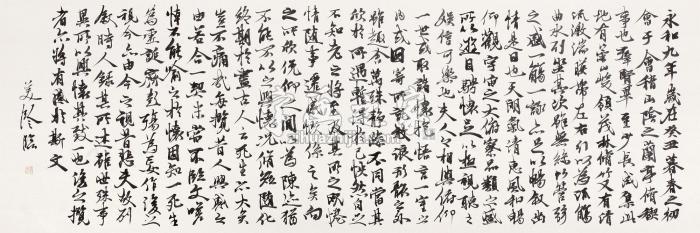 永和九年歲在癸丑暮春之初
會于會稽山陰之蘭亭脩禊
事也群賢畢至少長咸集此
地有崇山峻領茂林脩竹又有清
流激湍暎帶左右引以為流觴
曲水列坐其次雖無絲竹管弦
之盛一觴一詠亦足以暢叙幽
情是日也天朗氣清惠風和暢
仰觀宇宙之大俯察品類之盛
所以遊目騁懷足以極視聽之
娛信可樂也夫人之相與俯仰
一世或取諸懷抱悟言一室之
內或因寄所託放浪形骸之外
雖趣舍萬殊靜躁不同當其
欣於所遇暫得於己怏然自足
不知老之將至及其所之既惓
情隨事遷感慨係之矣向
之所欣俛仰之間以為陳迹猶
不能不以之興懷況脩短隨化
終期於盡古人云死生亦大矣
豈不痛哉每攬昔人興感之
由若合一契未嘗不臨文嗟
悼不能喻之於懷固知一死生
為虛誕齊彭殤為妄作後之
視今亦由今之視昔悲夫故列
敘時人錄其所述雖世殊事
異所以興懷其致一也後之攬
者亦將有感於斯文
臨